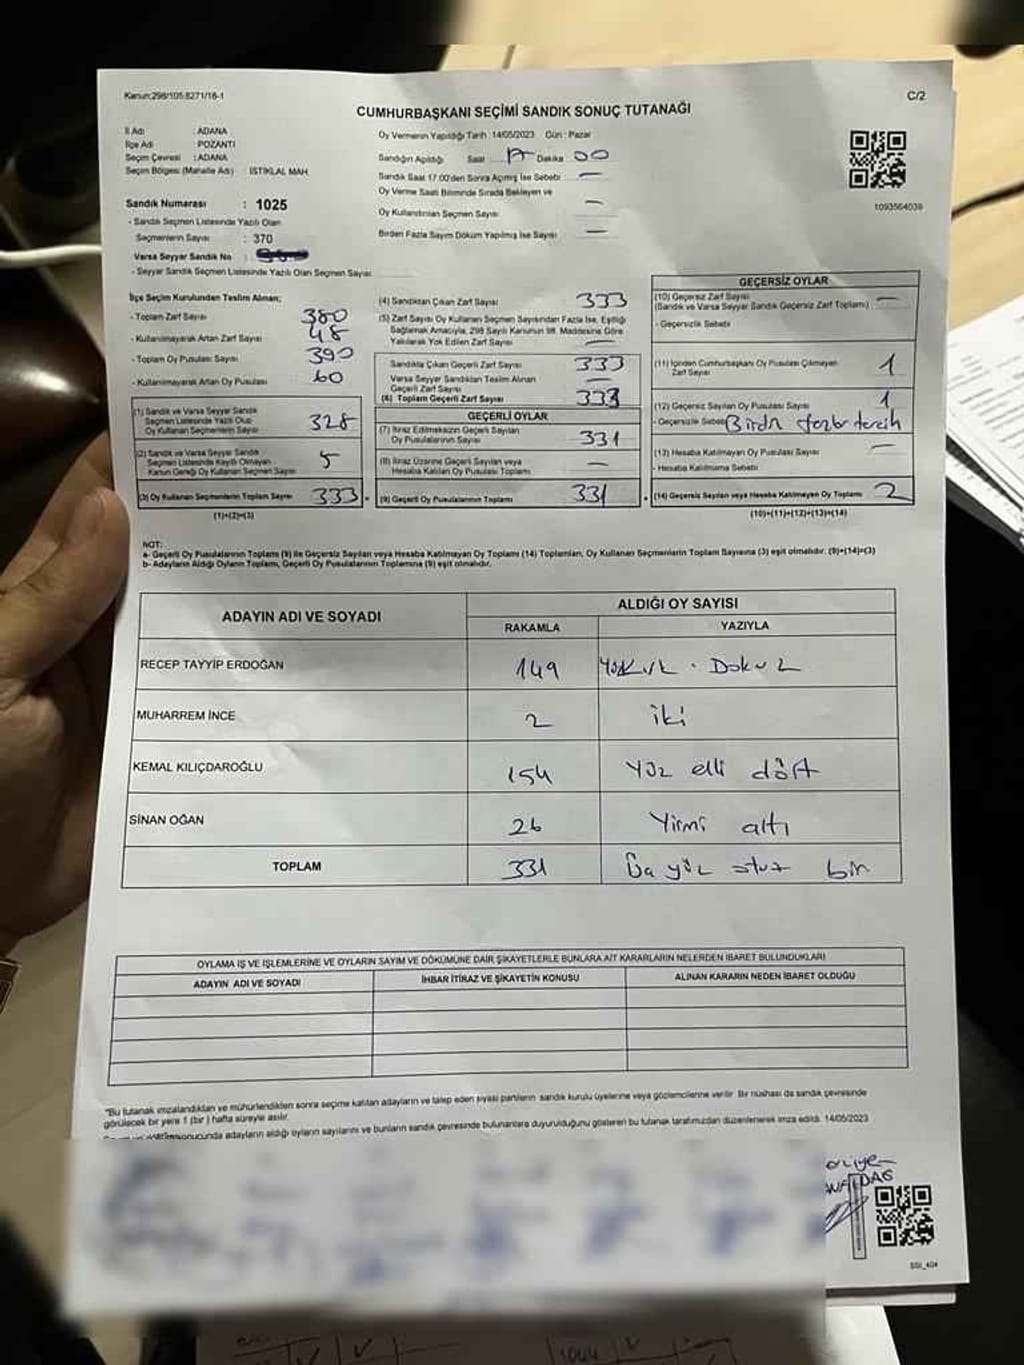 Kanun:298/105.8271/18-1
C/2
CUMHURBAŞKANI SEÇİMİ SANDIK SONUÇ TUTANAĞI
İl Adı : ADANA
İlçe Adı : POZANTI
Seçim Çevresi : ADANA
Seçim Bölgesi (Mahalle Adı) : İSTİKLAL MAH.
Sandık Numarası : 1025
- Sandık Seçmen Listesinde Yazılı Olan
Seçmenlerin Sayısı : 370
Varsa Seyyar Sandık No :
- Seyyar Sandık Seçmen Listesinde Yazılı Olan Seçmen Sayısı:
Oy Vermenin Yapıldığı Tarih :14/05/2023 Gün : Pazar
Sandığın Açıldığı Saat 17 Dakika 00
Sandık Saat 17:00'den Sonra Açılmış İse Sebebi —
Oy Verme Saati Bitiminde Sırada Bekleyen ve
Oy Kullandırılan Seçmen Sayısı —
Birden Fazla Sayım Döküm Yapılmış İse Sayısı —
1093564039
İlçe Seçim Kurulundan Teslim Alınan;
- Toplam Zarf Sayısı 380
- Kullanılmayarak Artan Zarf Sayısı 48
- Toplam Oy Pusulası Sayısı 390
- Kullanılmayarak Artan Oy Pusulası 60
(1) Sandık ve Varsa Seyyar Sandık
Seçmen Listesinde Yazılı Olup
Oy Kullanan Seçmenlerin Sayısı 328
(2) Sandık ve Varsa Seyyar Sandık
Seçmen Listesinde Kayıtlı Olmayan
Kanun Gereği Oy Kullanan Seçmen Sayısı 5
(3) Oy Kullanan Seçmenlerin Toplam Sayısı 333
(1)+(2)=(3)
(4) Sandıktan Çıkan Zarf Sayısı 333
(5) Zarf Sayısı Oy Kullanan Seçmen Sayısından Fazla İse, Eşitliği
Sağlamak Amacıyla, 298 Sayılı Kanunun 98. Maddesine Göre
Yakılarak Yok Edilen Zarf Sayısı —
Sandıkta Çıkan Geçerli Zarf Sayısı 333
Varsa Seyyar Sandıktan Teslim Alınan
Geçerli Zarf Sayısı —
(6) Toplam Geçerli Zarf Sayısı 333
GEÇERLİ OYLAR
(7) İtiraz Edilmeksizin Geçerli Sayılan
Oy Pusulalarının Sayısı 331
(8) İtiraz Üzerine Geçerli Sayılan veya
Hesaba Katılan Oy Pusulası Toplamı —
(9) Geçerli Oy Pusulalarının Toplamı 331
GEÇERSİZ OYLAR
(10) Geçersiz Zarf Sayısı —
(Sandık ve Varsa Seyyar Sandık Geçersiz Zarf Toplamı)
- Geçersizlik Sebebi
(11) İçinden Cumhurbaşkanı Oy Pusulası Çıkmayan
Zarf Sayısı 1
(12) Geçersiz Sayılan Oy Pusulası Sayısı 1
- Geçersizlik Sebebi Birden fazla tercih
(13) Hesaba Katılmayan Oy Pusulası Sayısı —
- Hesaba Katılmama Sebebi
(14) Geçersiz Sayılan veya Hesaba Katılmayan Oy Toplamı 2
(10)+(11)+(12)+(13)=(14)
NOT:
a- Geçerli Oy Pusulalarının Toplamı (9) ile Geçersiz Sayılan veya Hesaba Katılmayan Oy Toplamı (14) Toplamları, Oy Kullanan Seçmenlerin Toplam Sayısına (3) eşit olmalıdır. (9)+(14)=(3)
b- Adayların Aldığı Oyların Toplamı, Geçerli Oy Pusulalarının Toplamına (9) eşit olmalıdır.
ADAYIN ADI VE SOYADI
ALDIĞI OY SAYISI
RAKAMLA YAZIYLA
RECEP TAYYİP ERDOĞAN 149 Dokuz
MUHARREM İNCE 2 iki
KEMAL KILIÇDAROĞLU 154 Yüz elli dört
SİNAN OĞAN 26 Yirmi altı
TOPLAM 331 Üç yüz otuz bir
OYLAMA İŞ VE İŞLEMLERİNE VE OYLARIN SAYIM VE DÖKÜMÜNE DAİR ŞİKAYETLERLE BUNLARA AİT KARARLARIN NELERDEN İBARET BULUNDUKLARI
ADAYIN ADI VE SOYADI
İHBAR İTİRAZ VE ŞİKAYETİN KONUSU
ALINAN KARARIN NEDEN İBARET OLDUĞU
"Bu tutanak imzalandıktan ve mühürlendikten sonra seçime katılan adayların ve talep eden siyasi partilerin sandık kurulu üyelerine veya gözlemcilerine verilir. Bir nüshası da sandık çevresinde
görülecek bir yere 1 (bir) hafta süreyle asılır.
sonucunda adayların aldığı oyların sayılarını ve bunların sandık çevresinde bulunanlara duyurulduğunu gösteren bu tutanak tarafımızdan düzenlenerek imza edildi. 14/05/2023